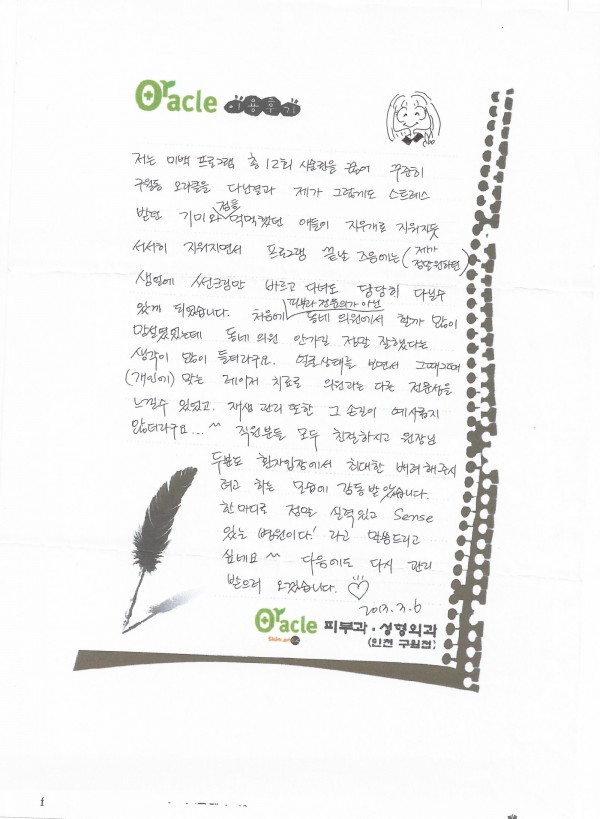 Oracle 이용후기
저는 미백 프로그램 총 12회 시술권을 끊어 꾸준히
구월동 오라클을 다닌결과 제가 그렇게도 스트레스
받던 기미와 점들 먹먹했던 얘들이 지우개로 지워지듯
서서히 지워지면서 프로그램 끝날 즈음에는 (제가 정말 원하던)
생얼에 썬크림만 바르고 다녀도 당당히 다닐수
있게 되었습니다. 처음에 피부과 전문의가 아닌 동네 의원에서 할까 많이
망설였었는데 동네 의원 안가길 정말 잘했다는
생각이 많이 들더라구요. 얼굴상태를 보면서 그때그때
(개인에) 맞는 레이저 치료로 의원과는 다른 전문성을
느낄수 있었고. 재생 관리 또한 그 손길이 예사롭지
않더라구요... ^^ 직원분들 모두 친절하시고 원장님
두분도 환자입장에서 최대한 배려해주시
려고 하는 모습에 감동받았습니다.
한마디로 정말 실력있고 Sense
있는 병원이다! 라고 말씀드리고
싶네요 ^^ 다음에도 다시 관리
받으러 오겠습니다. ♡
2013. 3. 6
Oracle 피부과·성형외과
(인천 구월점)